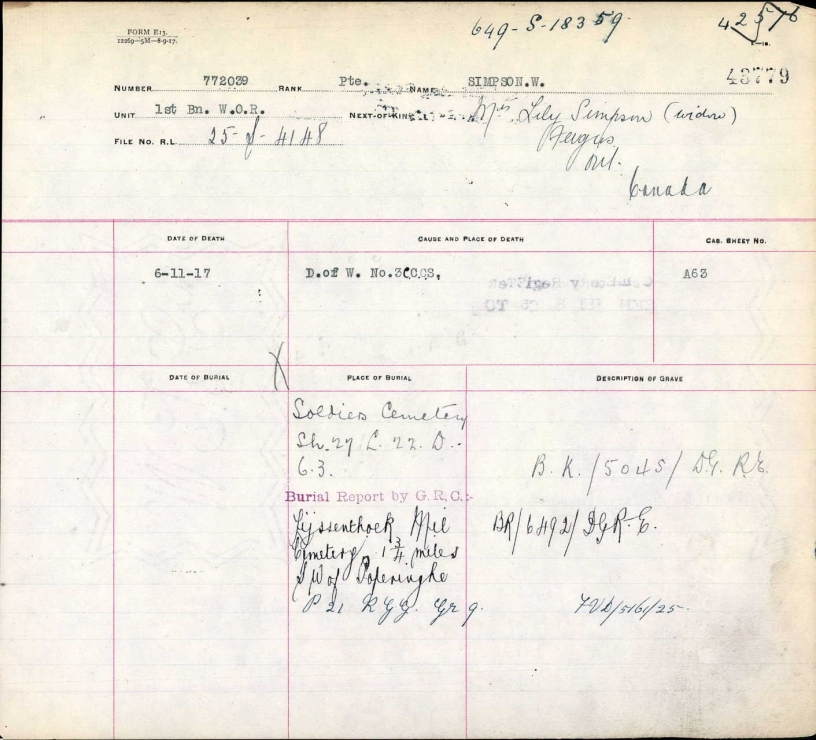 FORM E13.
12269—5M—8-9-17.
649-S-18359.
42576
43779
NUMBER 772039 RANK Pte. NAME SIMPSON.W.
UNIT 1st Bn. W.O.R. NEXT-OF-KIN Mrs. Lily Simpson (widow)
FILE NO. R.L. 25-J-4148 Fergus,
Ont.
Canada
DATE OF DEATH CAUSE AND PLACE OF DEATH CAS. SHEET NO.
6-11-17 D.of W. No.3 CCS. A63
DATE OF BURIAL PLACE OF BURIAL DESCRIPTION OF GRAVE
Soldiers Cemetery
Sh. 27 L. 22. D.
6.3. B.K./5045/D.G.R.E.
Burial Report by G.R.C.:-
Lijssenthoek Mil BR/6492/DGR.E.
Cemetery 1 3/4 miles
S W of Poperinghe
P 21 R GG. Gr 9.